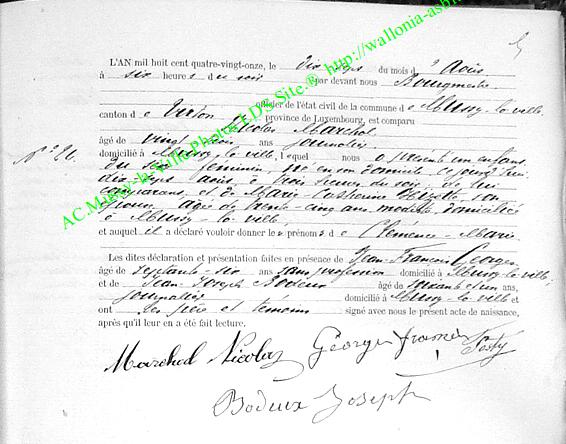 L'AN mil huit cent quatre-vingt-onze, le dix sept du mois d'Août
à six heures du soir par devant nous Bourgmestre
officier de l'état civil de la commune de Mussy-la-ville,
canton de Virton province de Luxembourg, est comparu
Nicolas Marchal
âgé de vingt ans journalier
domicilié à Mussy-la-ville, lequel nous a présenté un enfant
N° 26.
du sexe féminin, né en son domicile ce jourd'hui
dix sept août, à trois heures du soir, de lui
comparant, et de Marie Catherine son
épouse, âgée de trente-cinq ans, domiciliée
à Mussy-la-ville
et auquel il a déclaré vouloir donner les prénoms de Clémence-Marie
Les dites déclaration et présentation faites en présence de Jean-François Georges
âgé de septante-six ans sans profession domicilié à Mussy-la-ville
et de Jean-Joseph Bodeux âgé de soixante et un ans,
journalier domicilié à Mussy-la-ville et
ont les père et témoins signé avec nous le présent acte de naissance,
après qu'il leur en a été fait lecture.
Marchal Nicolas Georges françois
Bodeux Joseph
AC.Mussy-la-Ville Photos LDS Site.® http://wallonia-asb